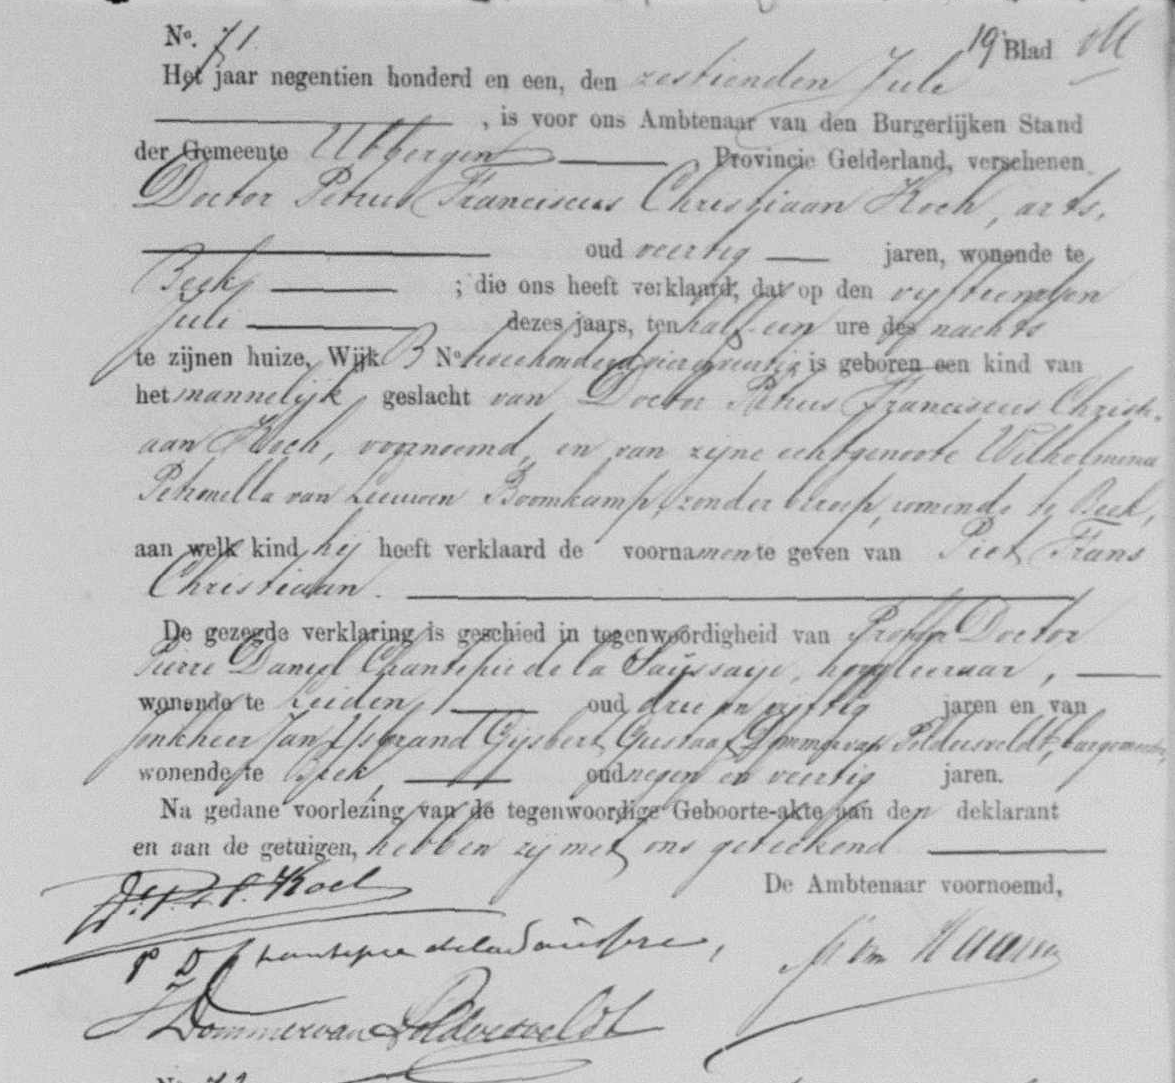 No. 71.
19e Blad
Het jaar negentien honderd en een, den zestienden Juli
, is voor ons Ambtenaar van den Burgerlijken Stand
der Gemeente Ubbergen Provincie Gelderland, verschenen
Doctor Petrus Franciscus Christiaan Koch, arts,
oud veertig jaren, wonende te
Beek ; die ons heeft verklaard, dat op den vijftienden
Juli dezes jaars, ten half een ure des nachts
te zijnen huize, Wijk B No. is geboren een kind van
het mannelijk geslacht van Doctor Petrus Franciscus Christi-
aan Koch, voornoemd, en van zijne echtgenoote Wilhelmina
Petronella van Leeuwen Boomkamp, zonder beroep, wonende te Beek,
aan welk kind hij heeft verklaard de voornamen te geven van Piet Frans
Christiaan.
De gezegde verklaring is geschied in tegenwoordigheid van Doctor
Pierre Daniel Chantepie de la Saussaye, hoogleeraar,
wonende te Leiden, oud drie en vijftig jaren en van
Jonkheer Jan IJsbrand Gijsbert Gustaaf Dommer van Poldersveldt, burgemeester,
wonende te Beek, oud negen en veertig jaren.
Na gedane voorlezing van de tegenwoordige Geboorte-akte aan den deklarant
en aan de getuigen, hebben zij met ons geteekend
De Ambtenaar voornoemd,
Koch
P D Chantepie de la Saussaye,
Dommer van Poldersveldt